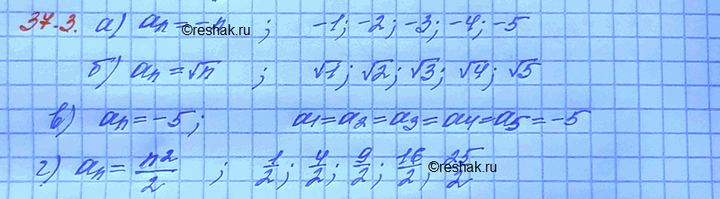 37.3. а) aₙ = -n ; -1; -2; -3; -4; -5
©reshak.ru
б) aₙ = √n ; √1; √2; √3; √4; √5
в) aₙ = -5; a₁ = a₂ = a₃ = a₄ = a₅ = -5
г) aₙ = n²/2 ; 1/2; 4/2; 9/2; 16/2; 25/2
©reshak.ru